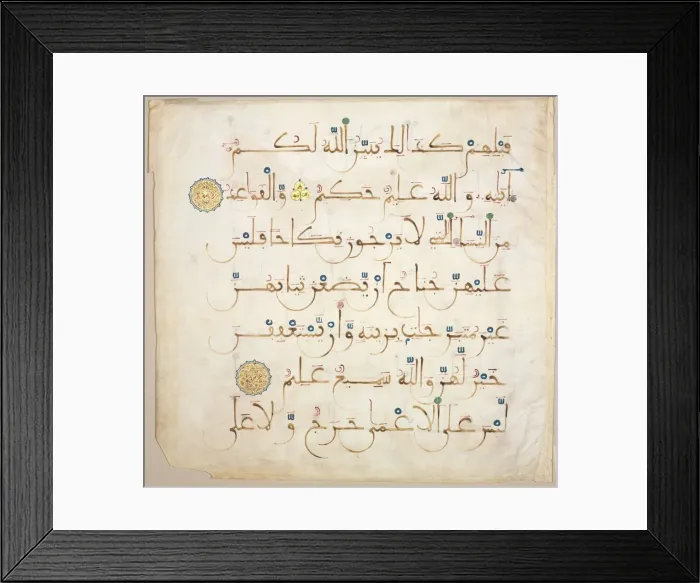 قبلهم كذلك يبين الله لكم
ءايته والله عليم حكيم والقواعد
من النساء التي لا يرجون نكاحا فليس
عليهن جناح أن يضعن ثيابهن
غير متبرجت بزينة وأن يستعففن
خير لهن والله سميع عليم
ليس على الأعمى حرج ولا على